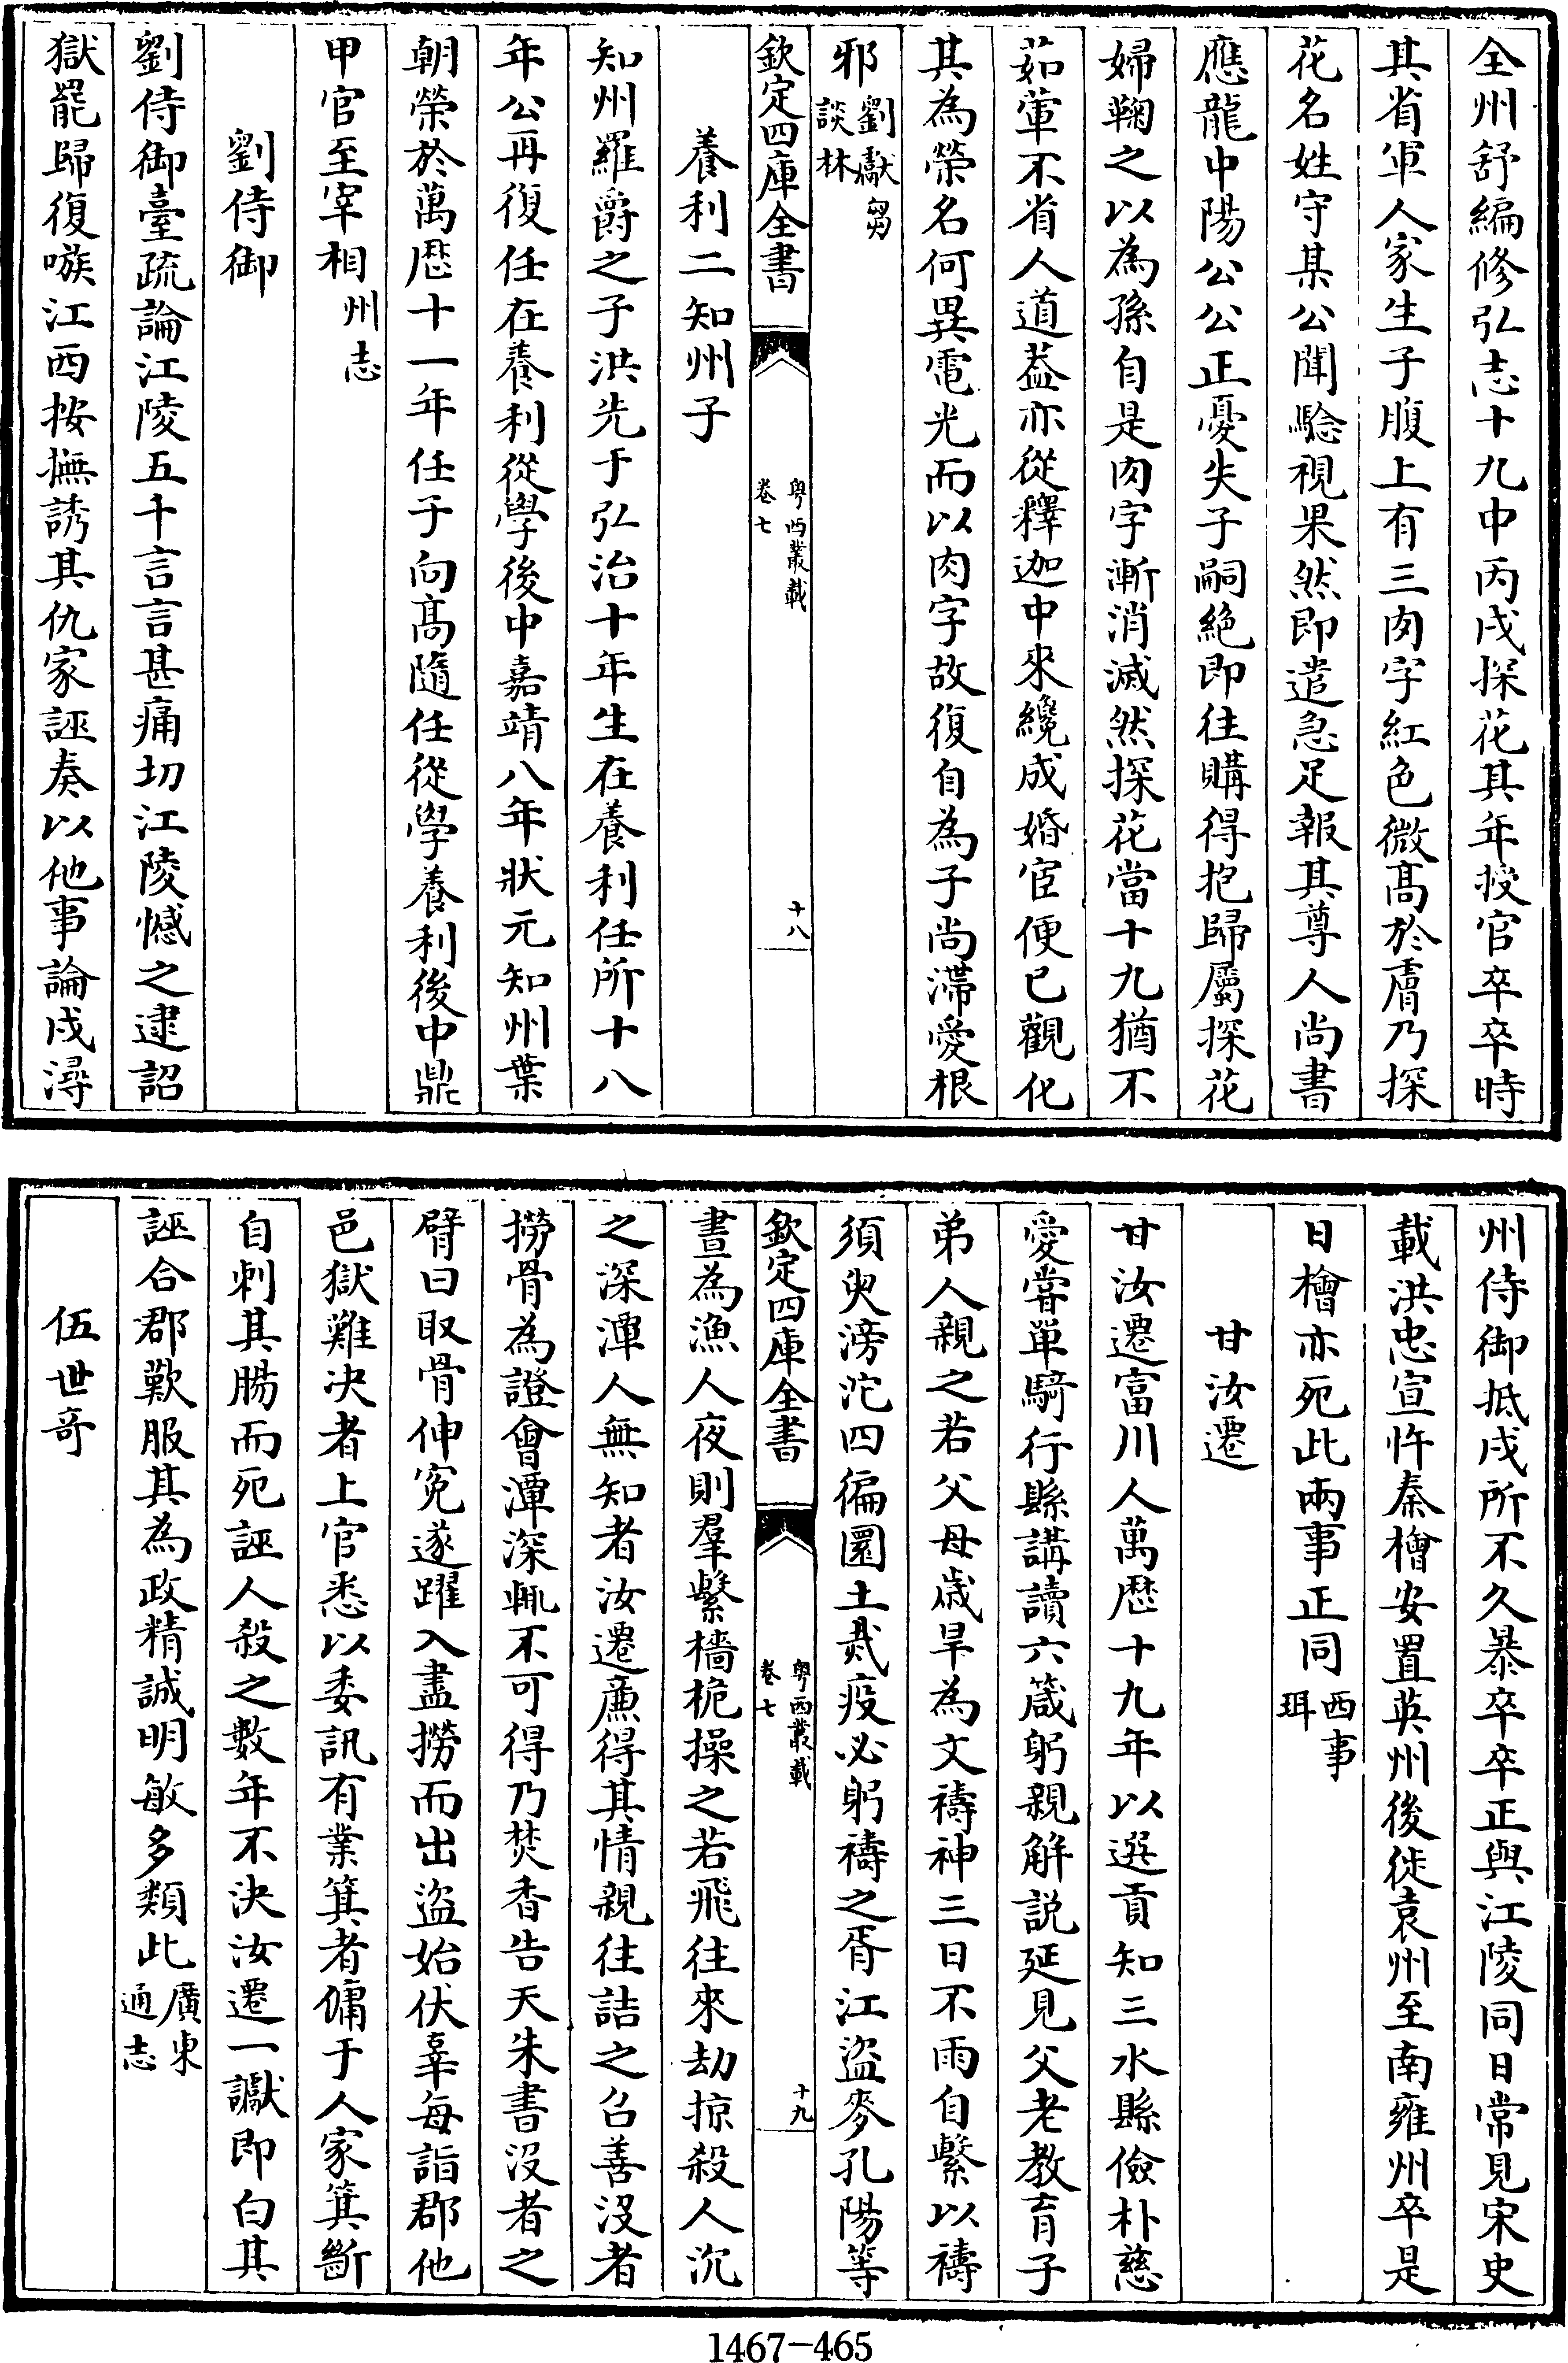 全州舒編修弘志十九中丙戌探花其年授官卒卒時
其省軍人家生子腹上有三肉字紅色微髙於膚乃探
花名姓守某公聞騐視果然即遣急足報其尊人尚書
應龍中陽公公正憂失子嗣絶即往購得抱歸屬探花
婦鞠之以為孫自是肉字漸消滅然探花當十九猶不
茹葷不省人道葢亦從釋迦中來纔成婚宦便已觀化
其為榮名何異電光而以肉字故復自為子尚滯愛根
邪劉獻芻談林
欽定四庫全書
粤西叢載
卷七
十八
養利二知州子
知州羅爵之子洪先于弘治十年生在養利任所十八
年公再復任在養利從學後中嘉靖八年狀元知州葉
朝榮於萬厯十一年任子向髙隨任從學養利後中鼎
甲官至宰相州志
劉侍御
劉侍御臺疏論江陵五千言言甚痛切江陵憾之逮詔
獄罷歸復嗾江西按撫誘其仇家誣奏以他事論戍潯
州侍御抵戍所不久暴卒卒正與江陵同日常見宋史
載洪忠宣忤秦檜安置英州後徙袁州至南雍州卒是
日檜亦死此兩事正同西事珥
甘汝遷
甘汝遷富川人萬厯十九年以選貢知三水縣儉朴慈
愛嘗單騎行縣講讀六箴躬親解説延見父老教育子
弟人親之若父母歳旱為文禱神三日不雨自繫以禱
須臾滂沱四徧圜土烖疫必躬禱之胥江盜麥孔陽等
欽定四庫全書
粤西叢載
卷七
十九
晝為漁人夜則羣繫檣桅操之若飛往來劫掠殺人沉
之深潭人無知者汝遷廉得其情親往詰之召善沒者
撈骨為證㑹潭深輒不可得乃焚香告天朱書沒者之
臂曰取骨伸寃遂躍入盡撈而出盜始伏辜每詣郡他
邑獄難决者上官悉以委訊有業箕者傭于人家箕斷
自刺其腸而死誣人殺之數年不决汝遷一讞即白其
誣合郡歎服其為政精誠明敏多類此廣東通志
伍世奇
1467-465